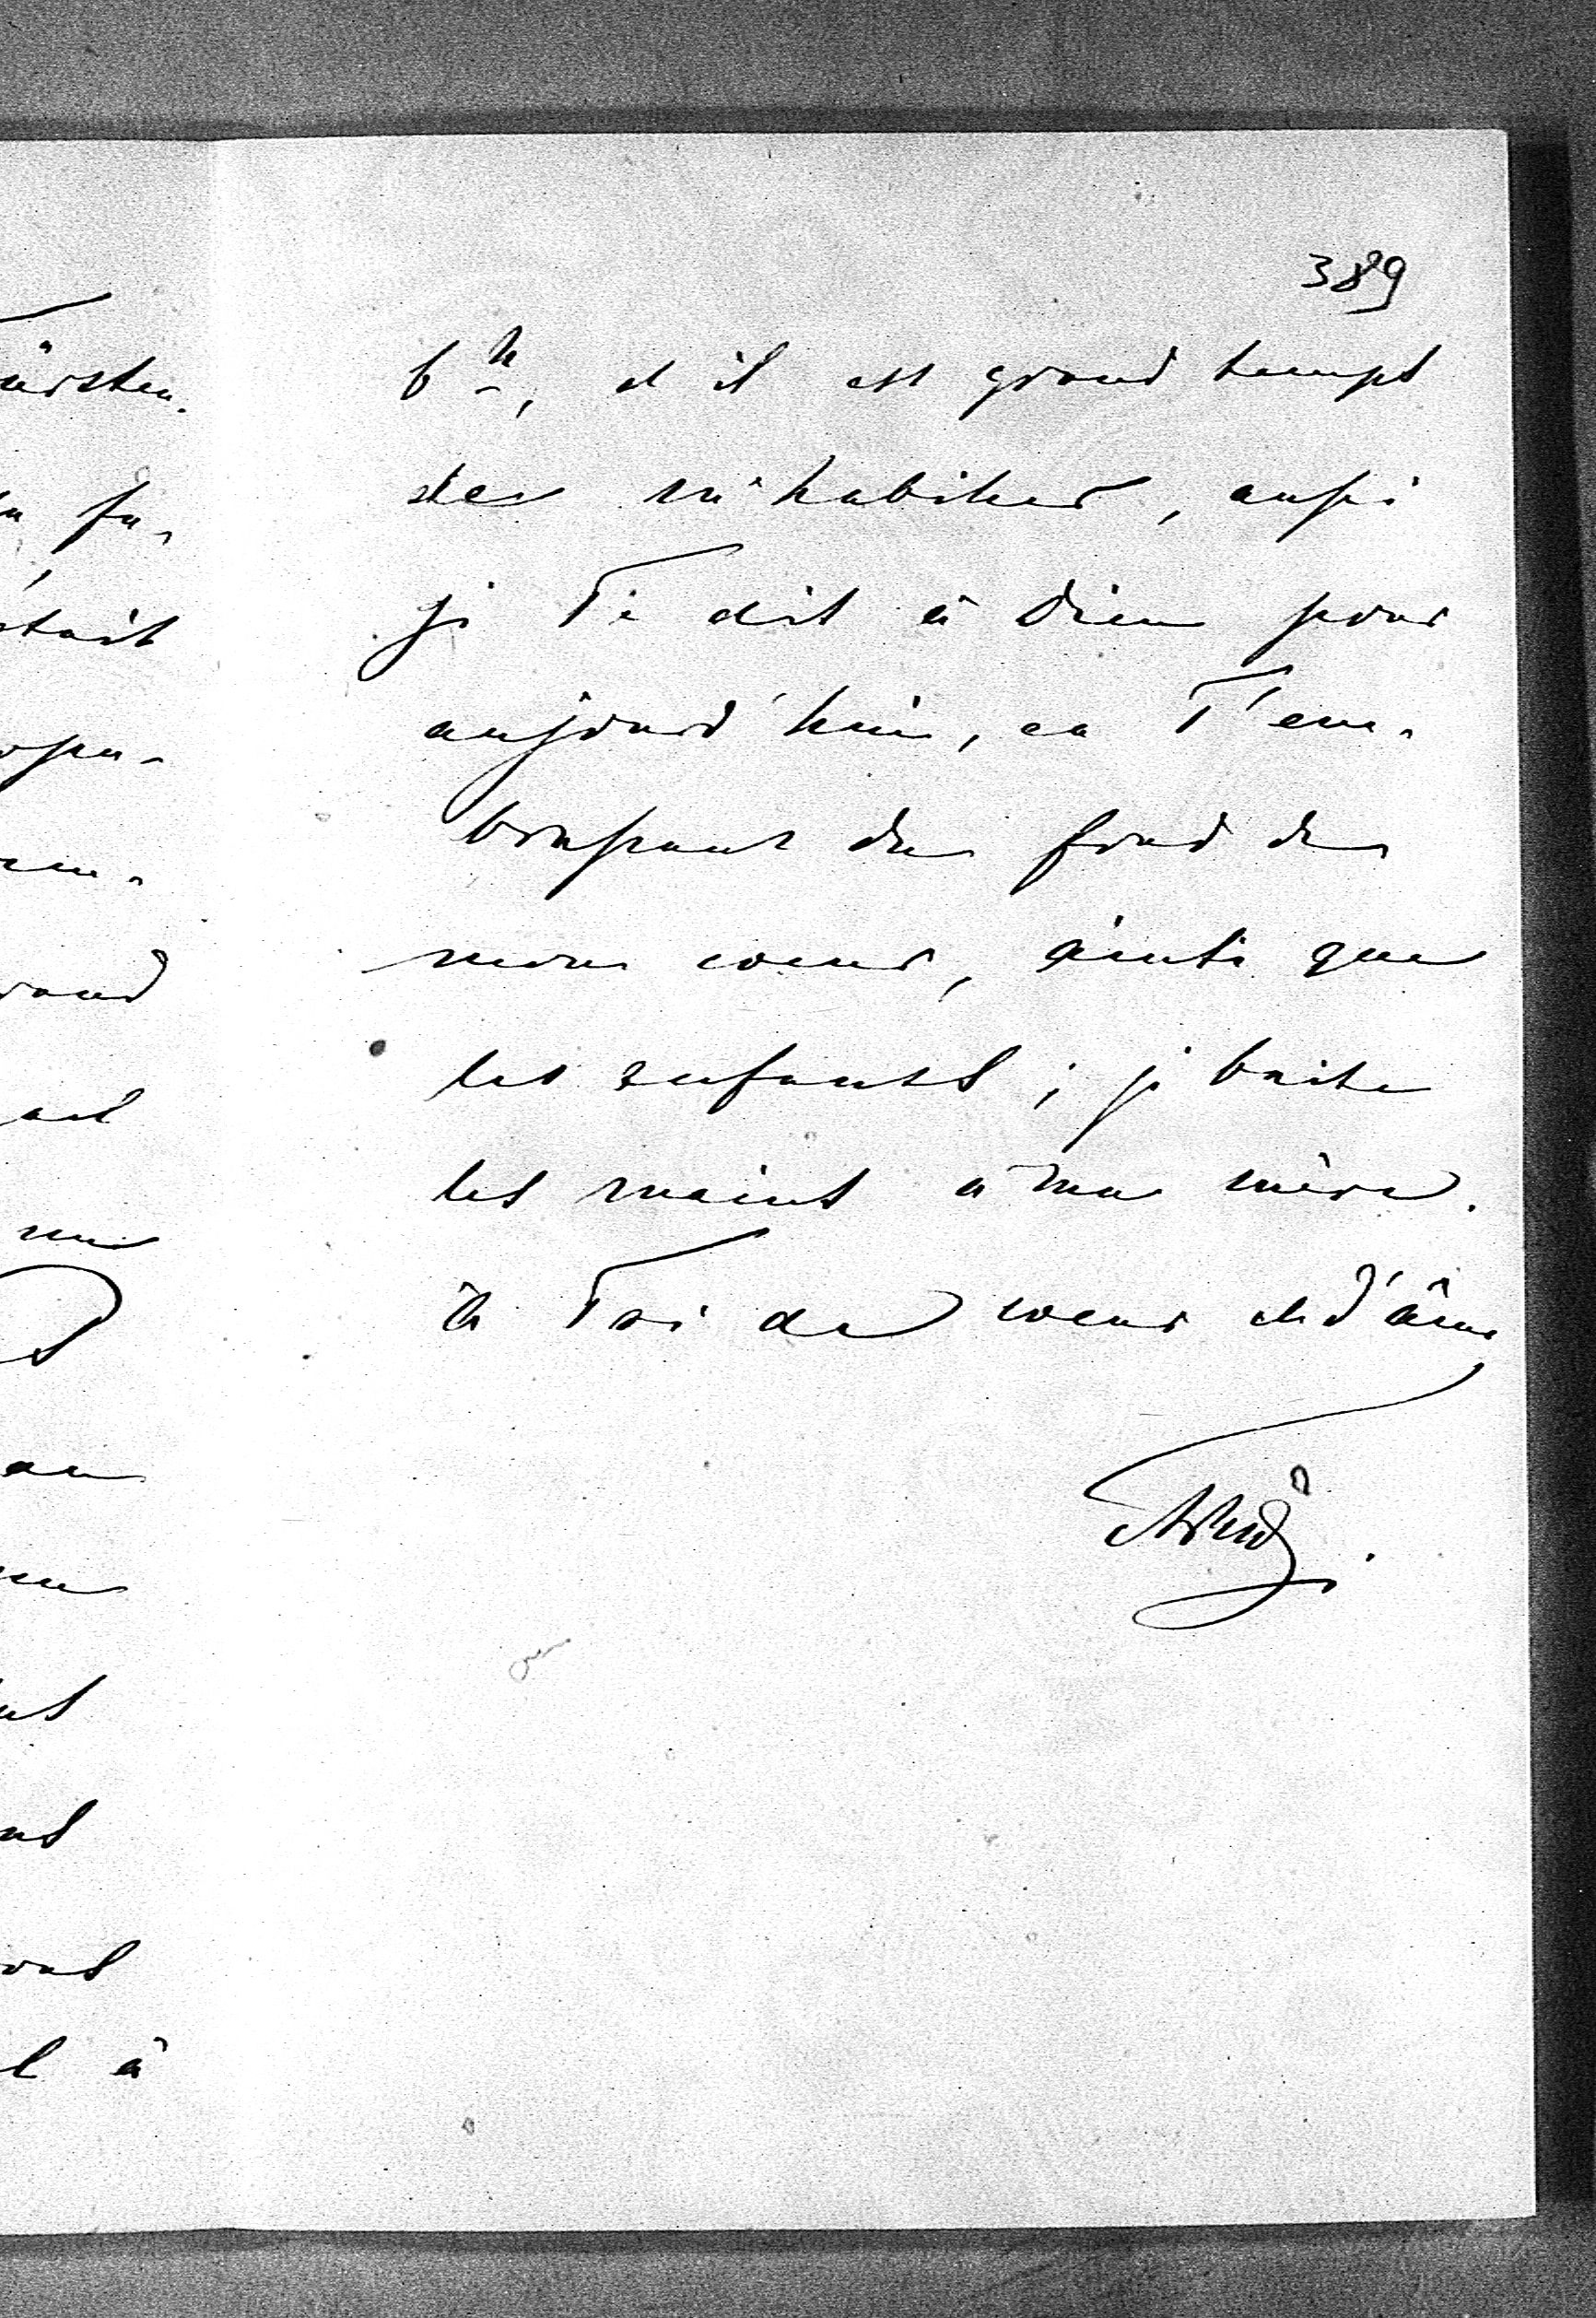 389
6 h, et il est grand temps
de m'habiller, aussi
je Te dis à Dieu pour
aujourd'hui, en T'em-
brassant du fond de
mon coeur, ainsi que
les enfants; je baise
les mains à ma mère.
à Toi de coeur et d'âme